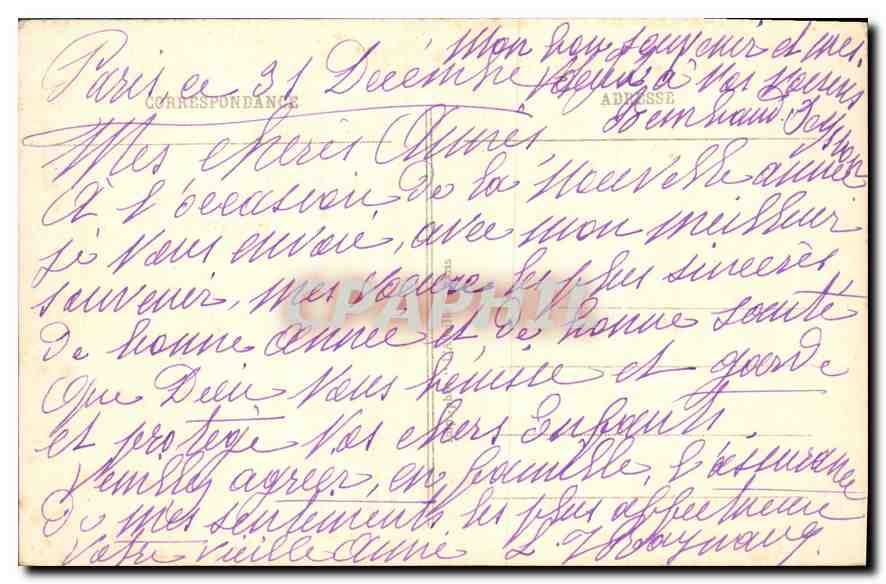 Mon bon souvenir et mes
Paris, ce 31 Décembre voeux à vos voisins
CORRESPONDANCE ADRESSE
Mes chères Amies
À l'occasion de la nouvelle année
je vous envoie, avec mon meilleur
souvenir, mes voeux les plus sincères
CPAPHIL
de bonne Année et de bonne santé
Que Dieu vous bénisse et garde
et protège vos chers Enfants
Veuillez agréer, en famille, l'assurance
de mes sentiments les plus affectueux
Votre vieille Amie L.